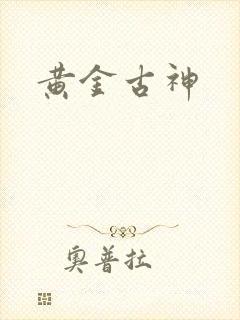 黄金古神
奥普拉